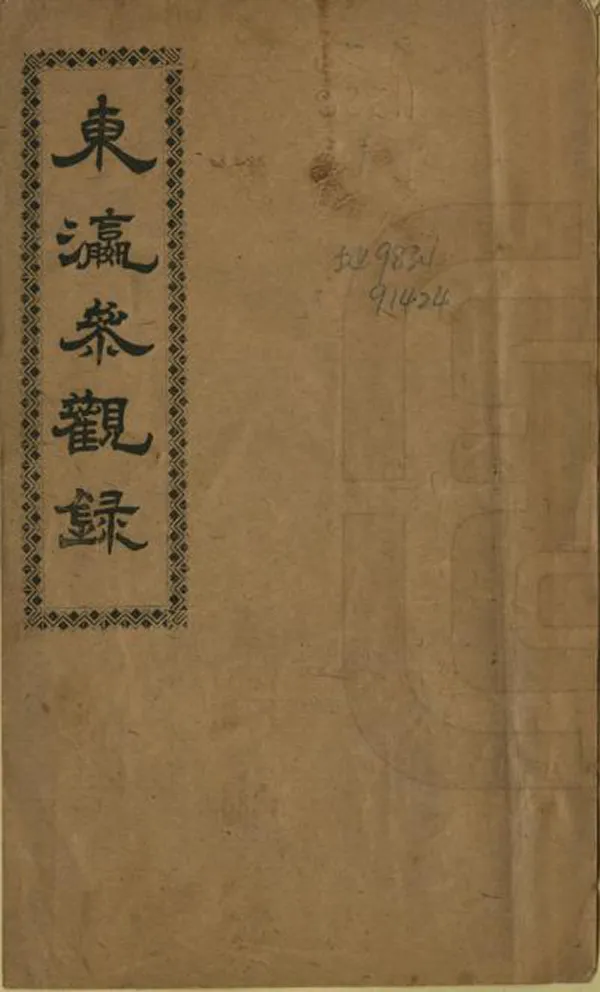 東瀛叅觀録
地983.1
91424